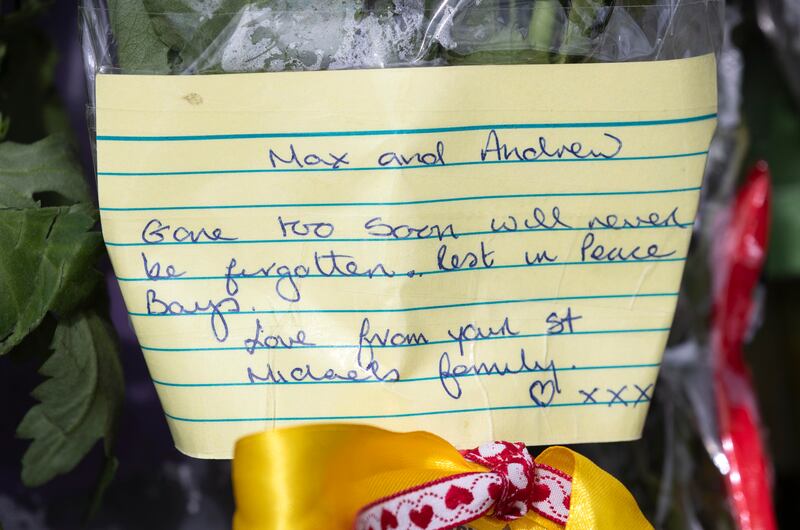 Max and Andrew
Gone too soon will never
be forgotten.. Rest in Peace
Boys.
Love from your St
Michaels family.
♡ xxx